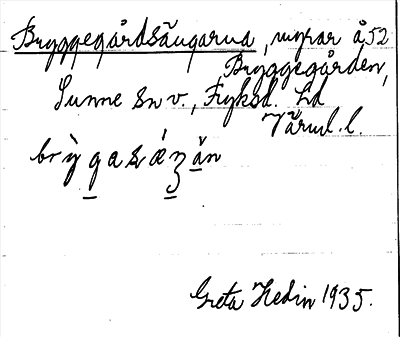 Bryggegårdsängarna, myrar å 52
Bryggegården,
Sunne sn v., Fryksd. hd
Värml. l.
brỳgasǽŋän
Greta Hedin 1935.